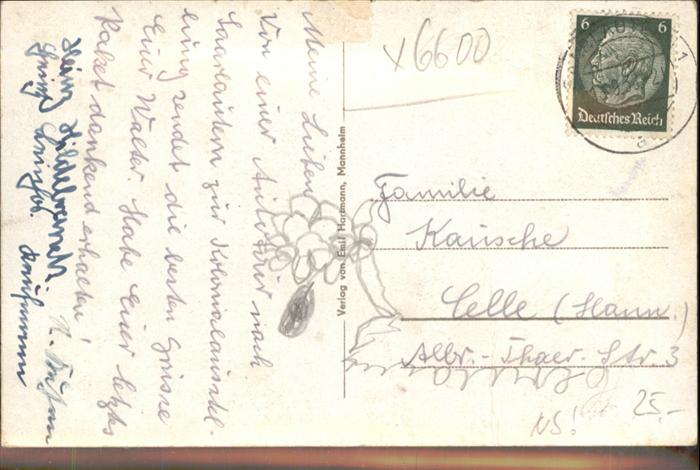 Meine Lieben
Von einer Autotour nach
Saarlautern zur Kolonialausstel-
lung sendet die besten Grüsse
Euer Walter. Habe Euer letztes
Paket dankend erhalten!
Heinz Hildebrandt.
Verlag von Emil Hartmann, Mannheim
x6600
6 6
Deutsches Reich
Familie
Kausche
Celle (Hann.)
Albr.-Thaer-Str. 3
NS! 25,-